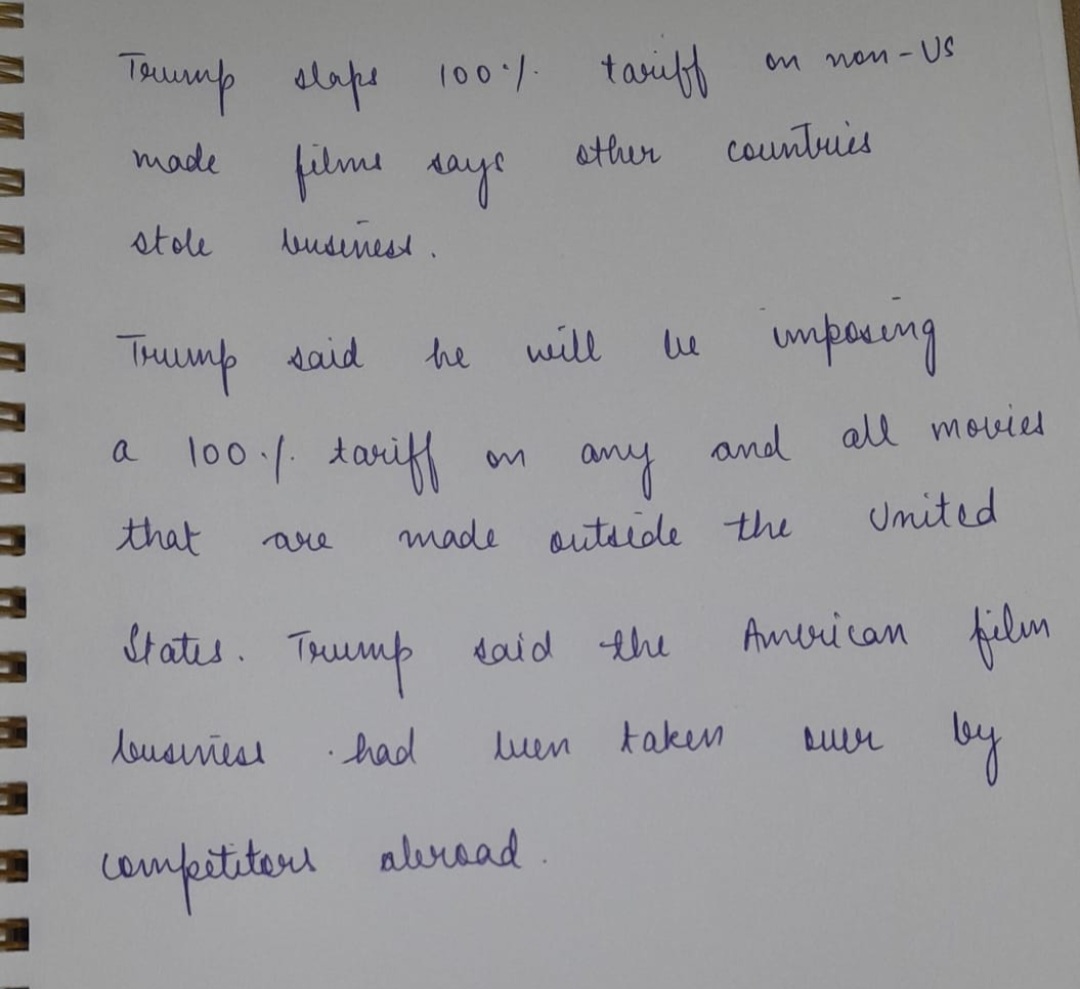 Trump slaps 100% tariff on non-US
made films says other countries
stole business.
Trump said he will be imposing
a 100% tariff on any and all movies
that are made outside the United
States. Trump said the American film
business had been taken over by
competitors abroad.